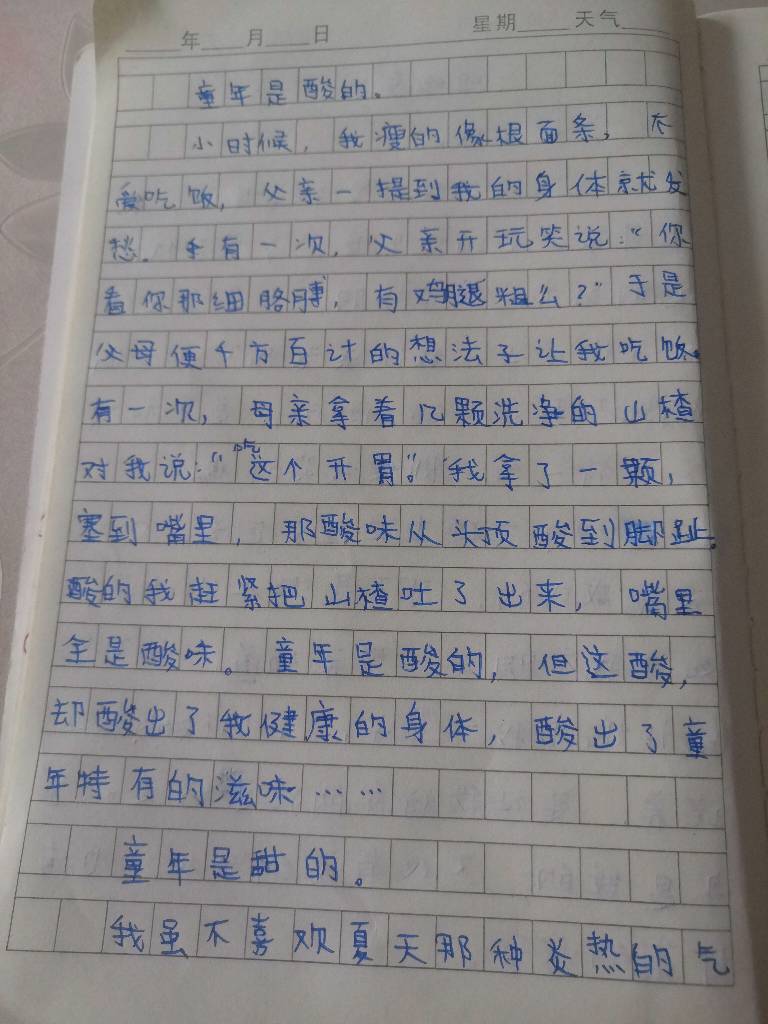 年 月 日 星期 天气
童年是酸的。
小时候，我瘦的像根面条，不
爱吃饭，父亲一提到我的身体就发
愁。有一次，父亲开玩笑说：“你
看你那细胳膊，有鸡腿粗么？”于是
父母便千方百计的想法子让我吃饭。
有一次，母亲拿着几颗洗净的山楂
对我说：“吃这个开胃。”我拿了一颗，
塞到嘴里，那酸味从头顶酸到脚趾。
酸的我赶紧把山楂吐了出来，嘴里
全是酸味。童年是酸的，但这酸，
却酸出了我健康的身体，酸出了童
年特有的滋味……
童年是甜的。
我虽不喜欢夏天那种炎热的气